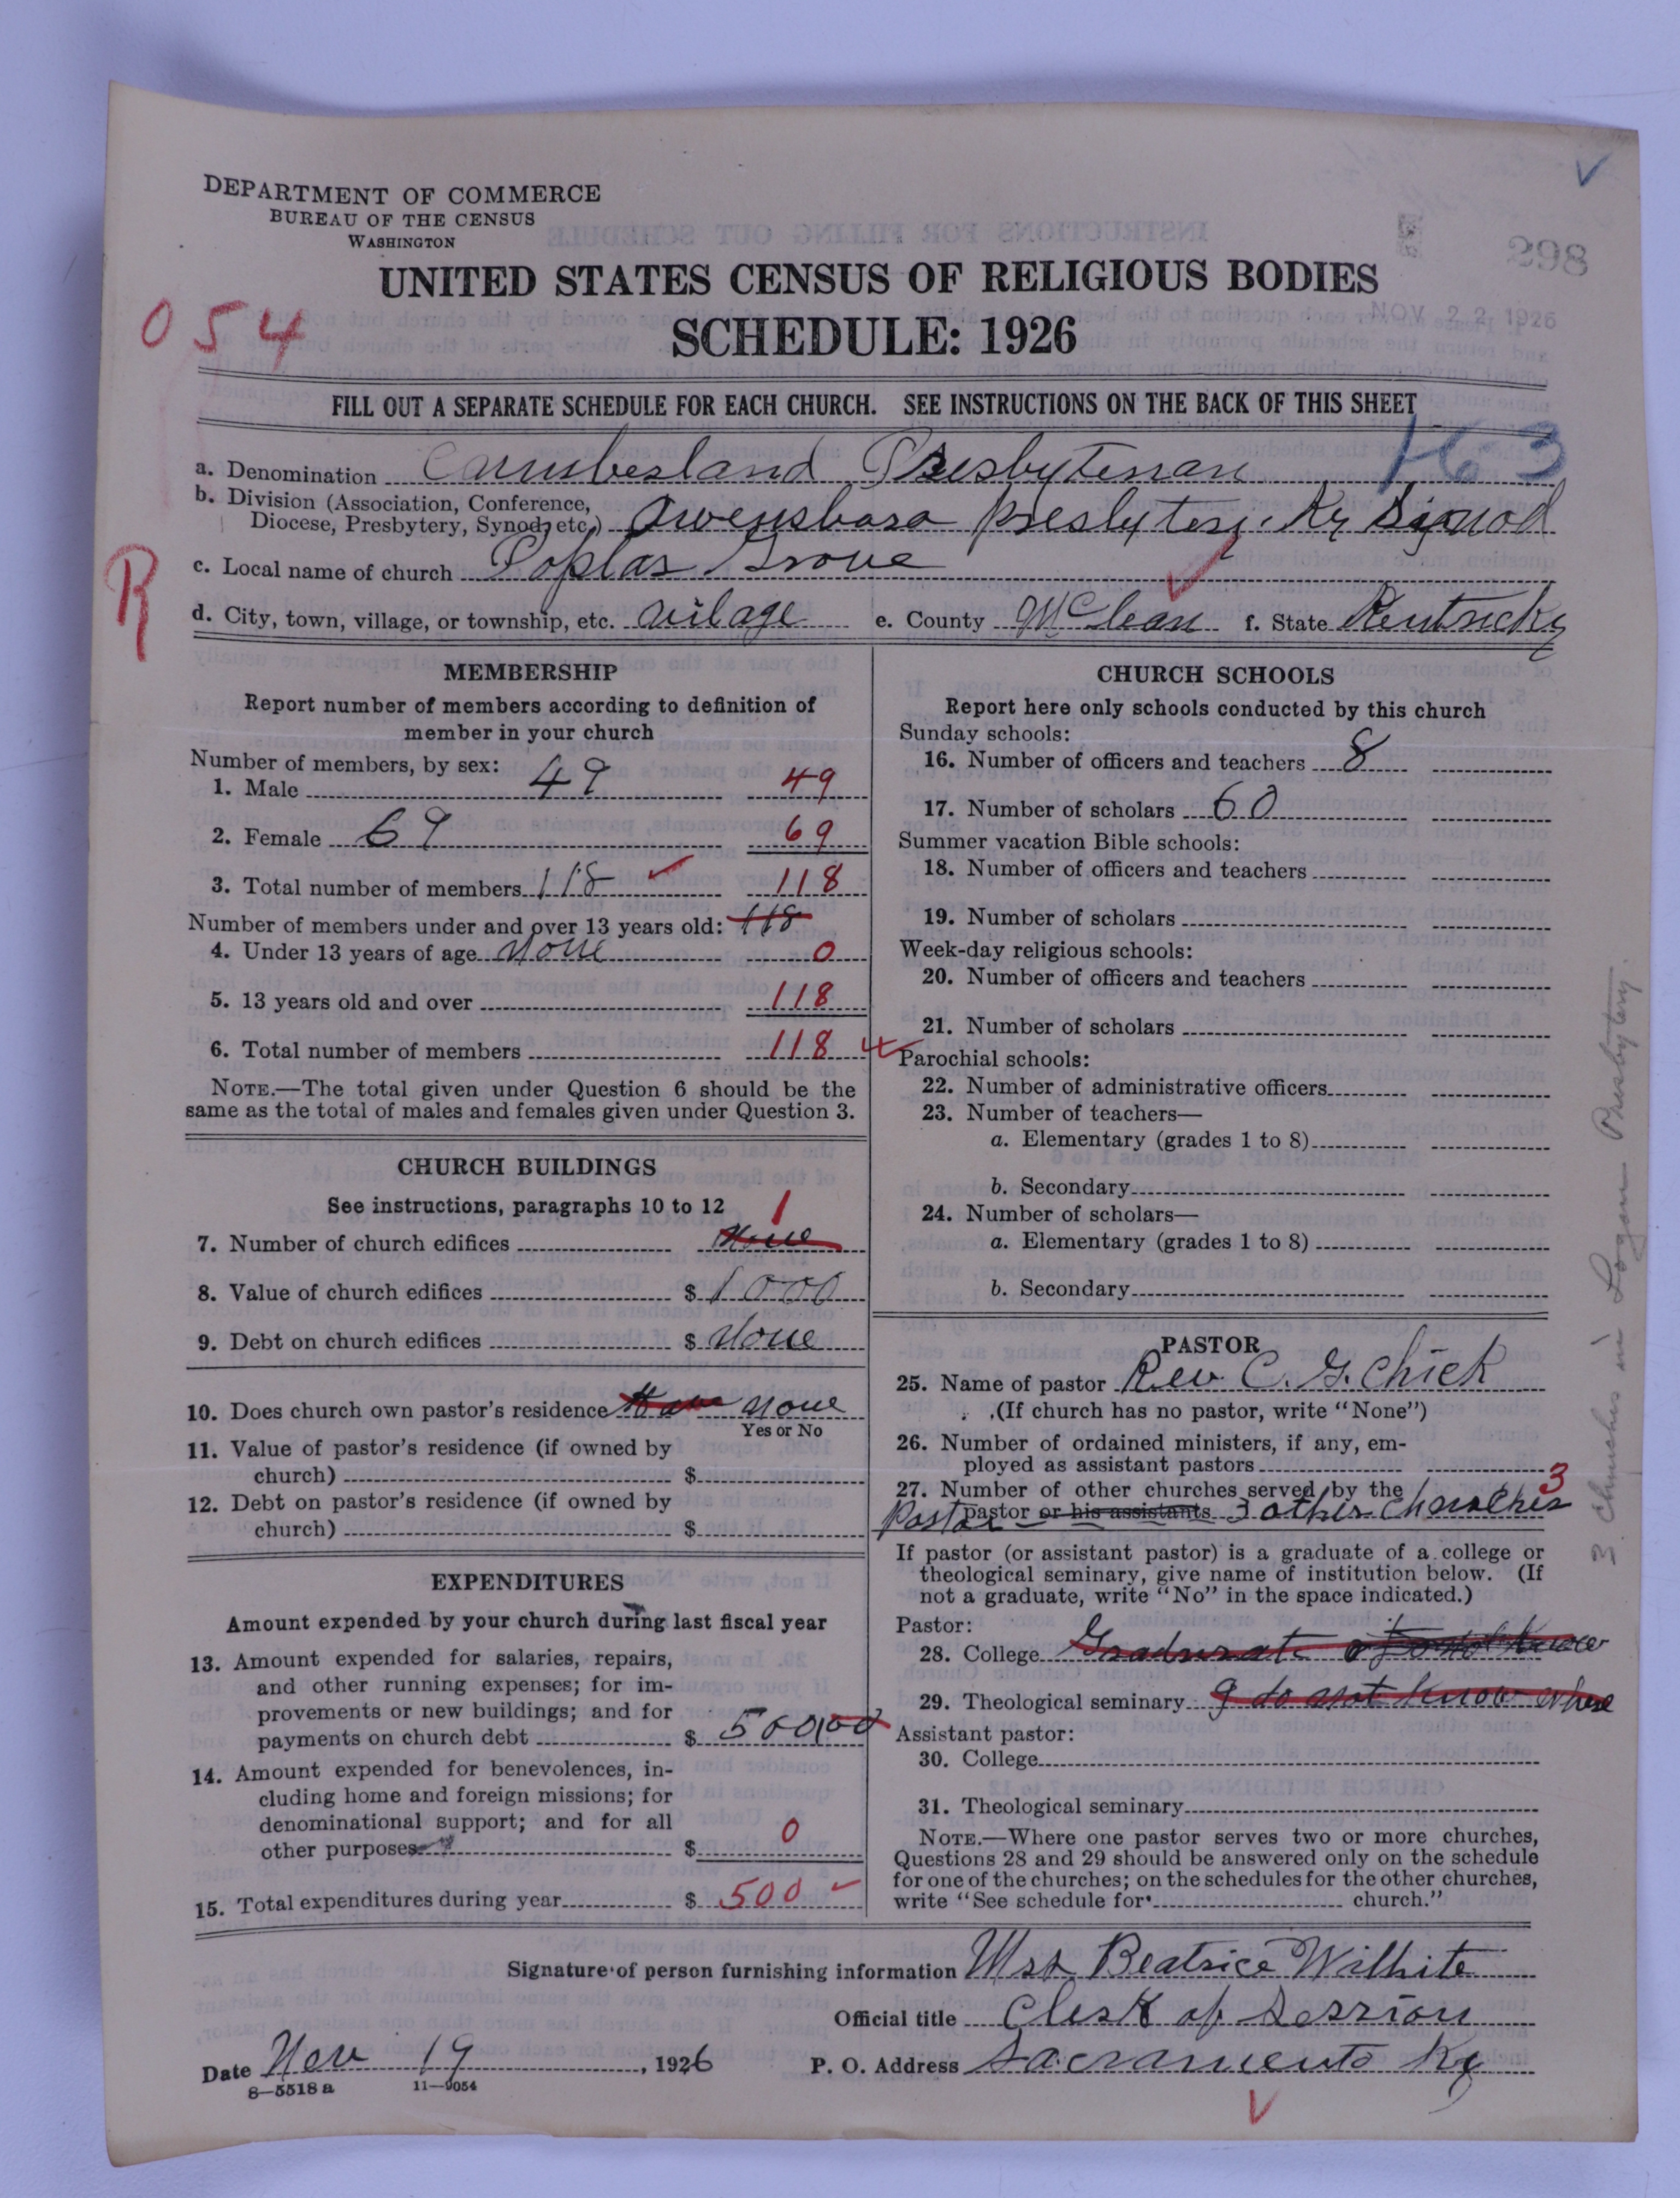 DEPARTMENT OF COMMERCE
BUREAU OF THE CENSUS
WASHINGTON
298
UNITED STATES CENSUS OF RELIGIOUS BODIES
NOV 22 1926
054
SCHEDULE: 1926
FILL OUT A SEPARATE SCHEDULE FOR EACH CHURCH. SEE INSTRUCTIONS ON THE BACK OF THIS SHEET
163
a. Denomination Cumberland Presbyterian
b. Division (Association, Conference,
Diocese, Presbytery, Synod, etc.) Owensboro Presbytery. Ky Synod
R
c. Local name of church Poplar Grove
d. City, town, village, or township, etc. vilage e. County McClean f. State Kentucky
MEMBERSHIP
Report number of members according to definition of
member in your church
Number of members, by sex:
1. Male 49 49
2. Female 69 69
3. Total number of members 118 118
Number of members under and over 13 years old: 118
4. Under 13 years of age none 0
5. 13 years old and over 118
6. Total number of members 118
NOTE.—The total given under Question 6 should be the
same as the total of males and females given under Question 3.
CHURCH BUILDINGS
See instructions, paragraphs 10 to 12
1
7. Number of church edifices None
8. Value of church edifices $ 1000
9. Debt on church edifices $ None
10. Does church own pastor's residence none
Yes or No
11. Value of pastor's residence (if owned by
church) $
12. Debt on pastor's residence (if owned by
church) $
EXPENDITURES
Amount expended by your church during last fiscal year
13. Amount expended for salaries, repairs,
and other running expenses; for im-
provements or new buildings; and for
payments on church debt $ 500,00
14. Amount expended for benevolences, in-
cluding home and foreign missions; for
denominational support; and for all
other purposes ? $ 0
15. Total expenditures during year $ 500
CHURCH SCHOOLS
Report here only schools conducted by this church
Sunday schools:
16. Number of officers and teachers 8
17. Number of scholars 60
Summer vacation Bible schools:
18. Number of officers and teachers
19. Number of scholars
Week-day religious schools:
20. Number of officers and teachers
21. Number of scholars
Parochial schools:
22. Number of administrative officers
23. Number of teachers—
a. Elementary (grades 1 to 8)
b. Secondary
24. Number of scholars—
a. Elementary (grades 1 to 8)
b. Secondary
PASTOR
25. Name of pastor Rev C. G. Chick
(If church has no pastor, write "None")
26. Number of ordained ministers, if any, em-
ployed as assistant pastors
27. Number of other churches served by the 3
Pastor pastor or his assistants 3 other churches
If pastor (or assistant pastor) is a graduate of a college or
theological seminary, give name of institution below. (If
not a graduate, write "No" in the space indicated.)
Pastor:
28. College Graduate of
29. Theological seminary I do not know where
Assistant pastor:
30. College
31. Theological seminary
NOTE.—Where one pastor serves two or more churches,
Questions 28 and 29 should be answered only on the schedule
for one of the churches; on the schedules for the other churches,
write "See schedule for church."
3 churches in Logan Presbytery.
Signature of person furnishing information Mrs Beatrice Wilhite
Official title Clerk of Session
Date Nov 19, 1926 P. O. Address Sacramento Ky
8—5518 a 11—9054